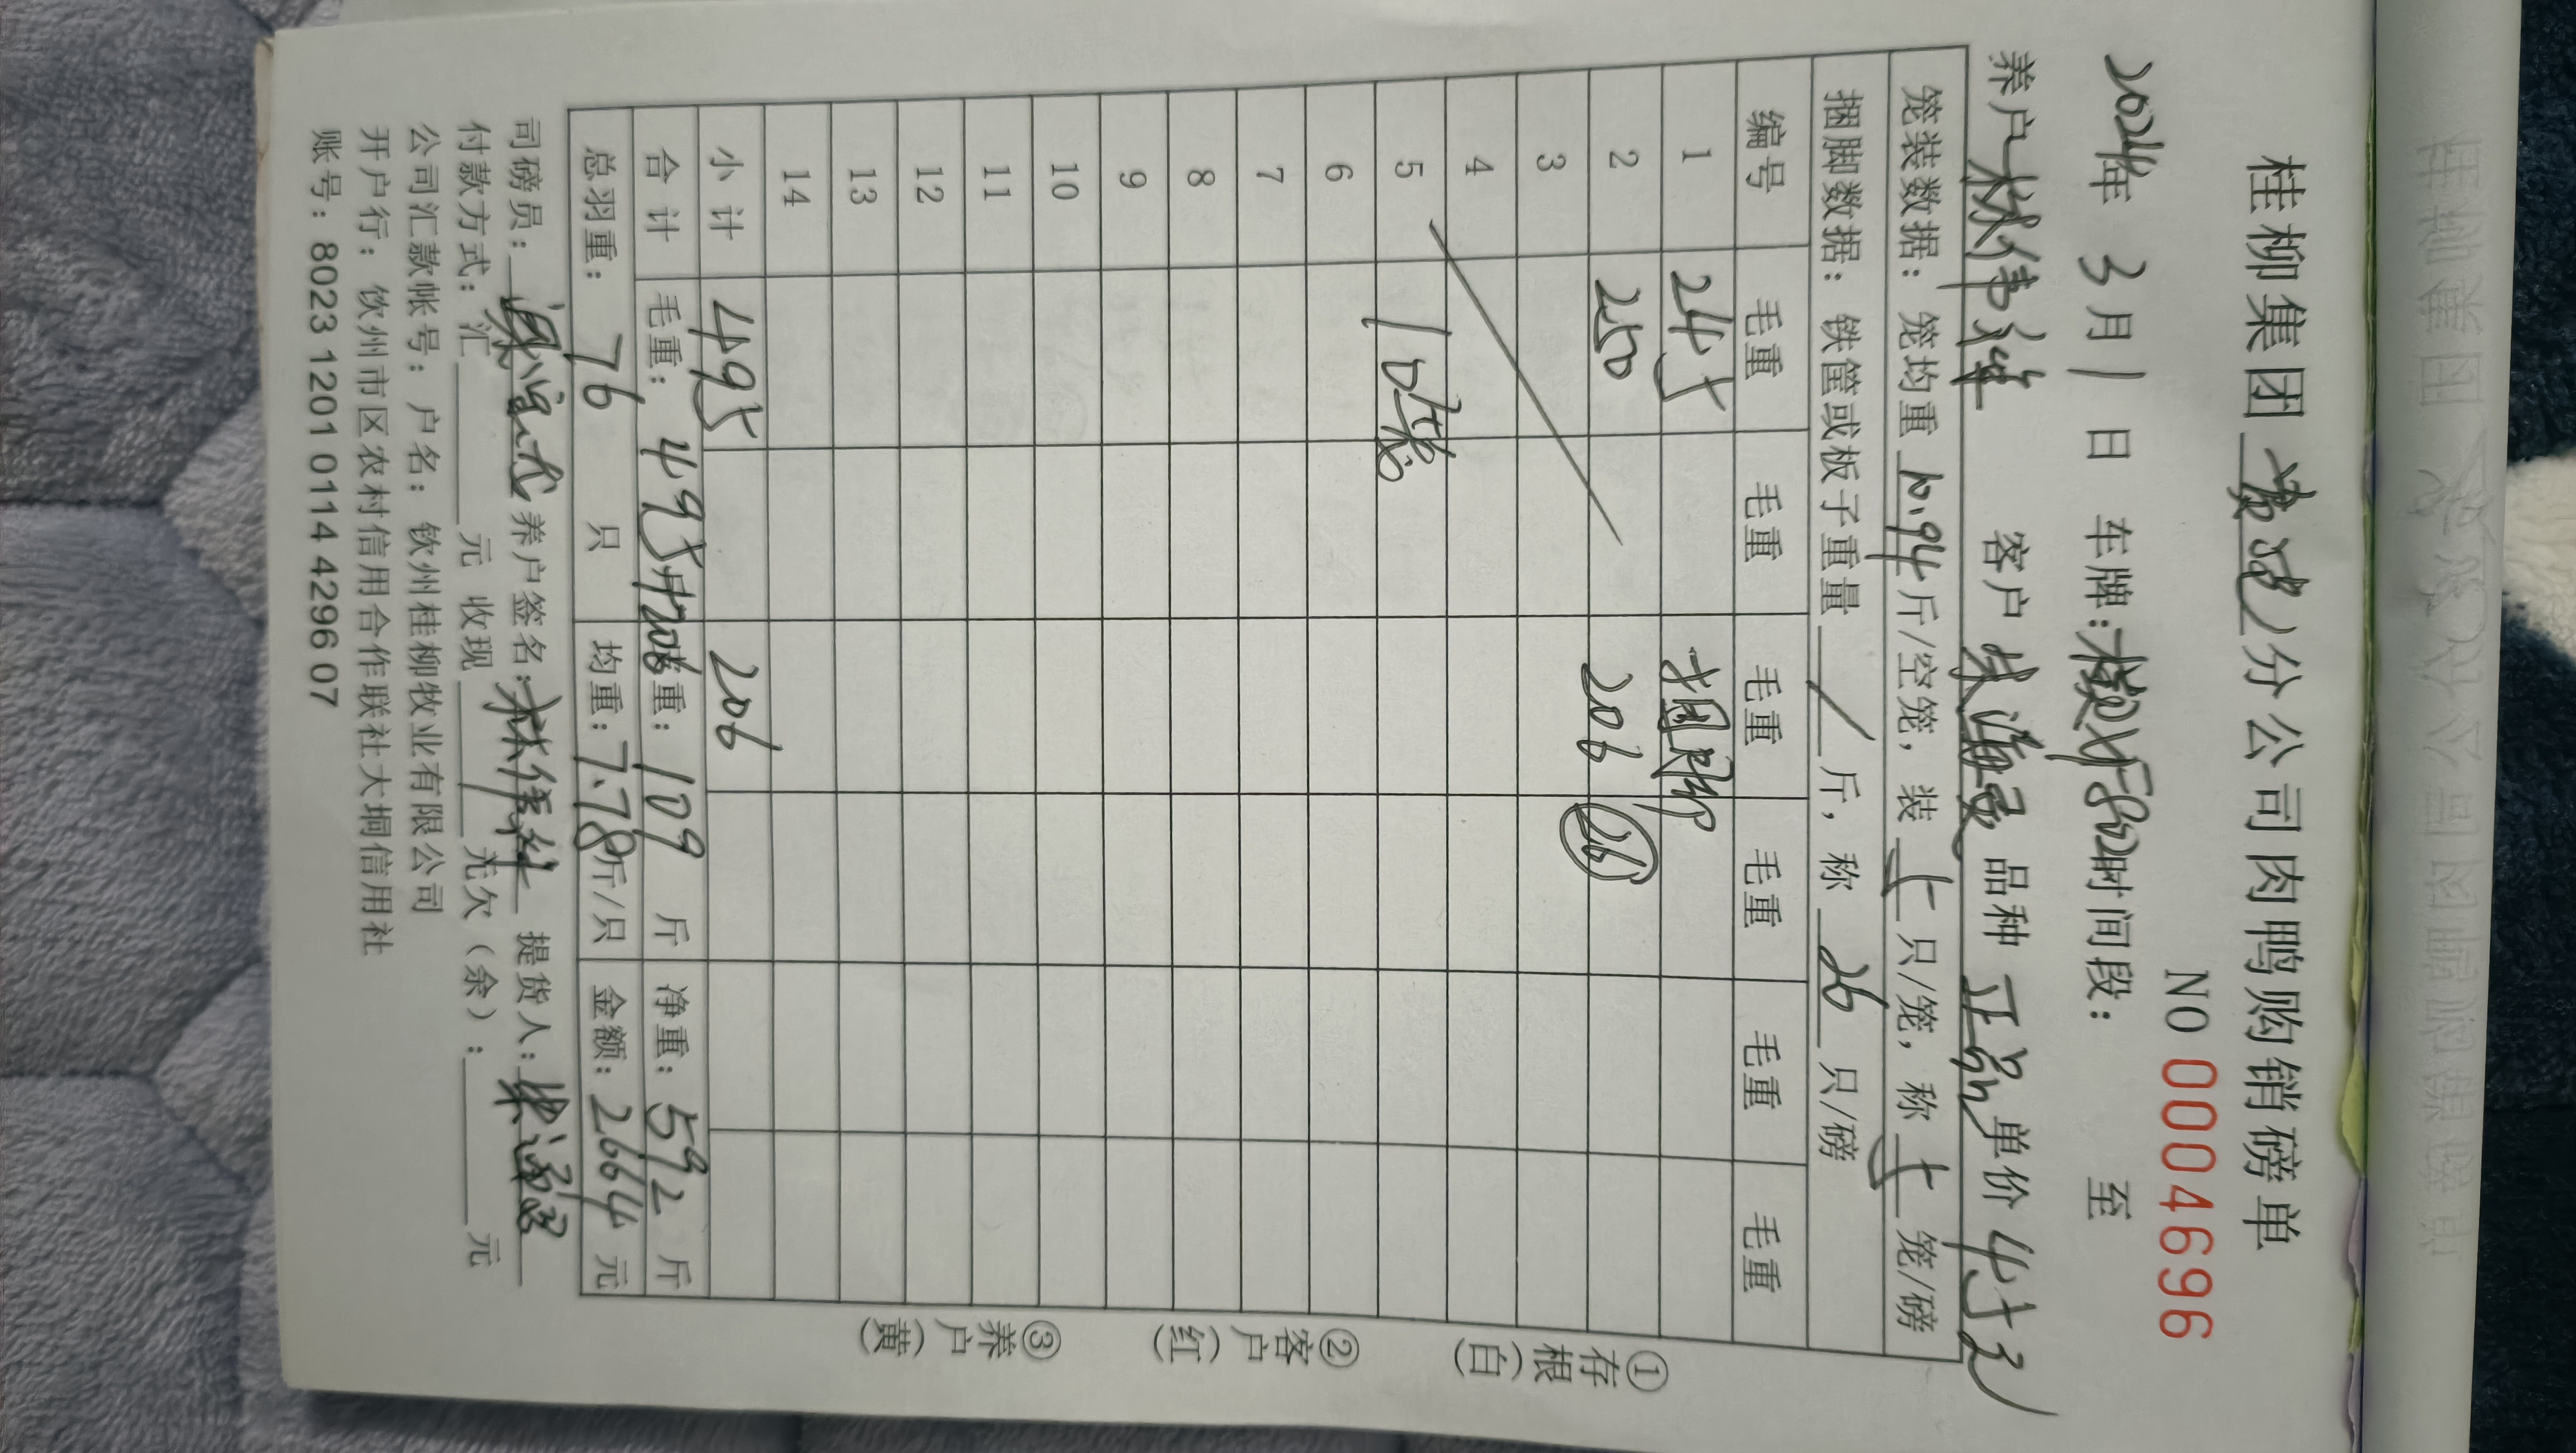 桂柳集团 分公司肉鸭购销磅单
NO 0004696
2024年 3月1日 车牌: 时间段: 至
养户 林伟 客户 海 品种 正品 单价 4.5元
笼装数据: 笼均重 10.94 斤/空笼, 装 5 只/笼, 称 5 笼/磅
捆脚数据: 铁筐或板子重量 / 斤, 称 26 只/磅
编号 毛重 毛重 毛重 毛重 毛重 毛重
1 245 捆脚
2 250 206 26
3
4
5 10笼
6
7
8
9
10
11
12
13
14
小计 495 206
合计 毛重: 495+206 重: 109 斤 净重: 592 斤
总羽重: 76 只 均重: 7.78斤/只 金额: 2664 元
司磅员: 养户签名: 林伟 提货人:
付款方式: 汇 元 收现 元欠(余): 元
公司汇款帐号: 户名: 钦州桂柳牧业有限公司
开户行: 钦州市区农村信用合作联社大垌信用社
账号: 8023 1201 0114 4296 07
①存根(白) ②客户(红) ③养户(黄)